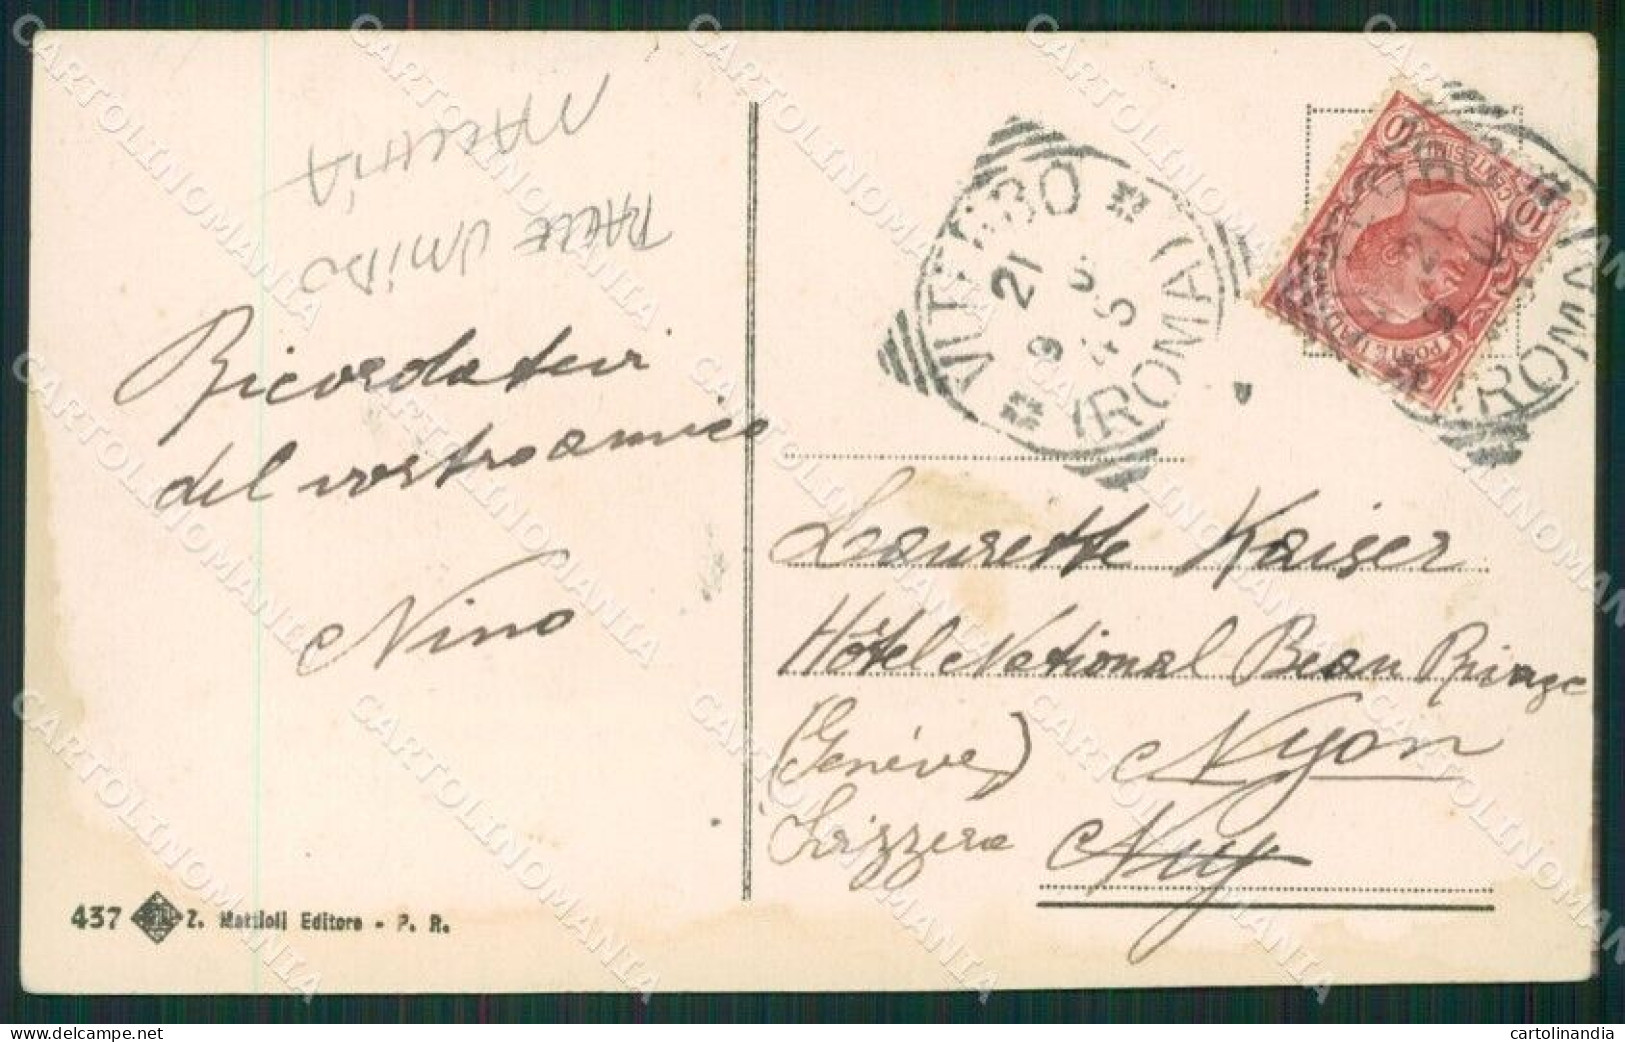 Ricordatevi
del vostro amico
Nino
437 Z. Mattioli Editore - P. R.
VITERBO (ROMA)
21
9 45
10 CENTESIMI 10
POSTE ITALIANE
Laurette Kaiser
Hôtel National Beau Rivage
(Genève) Nyon
Svizzera Ny
CARTOLINOMANIA
cartolinandia